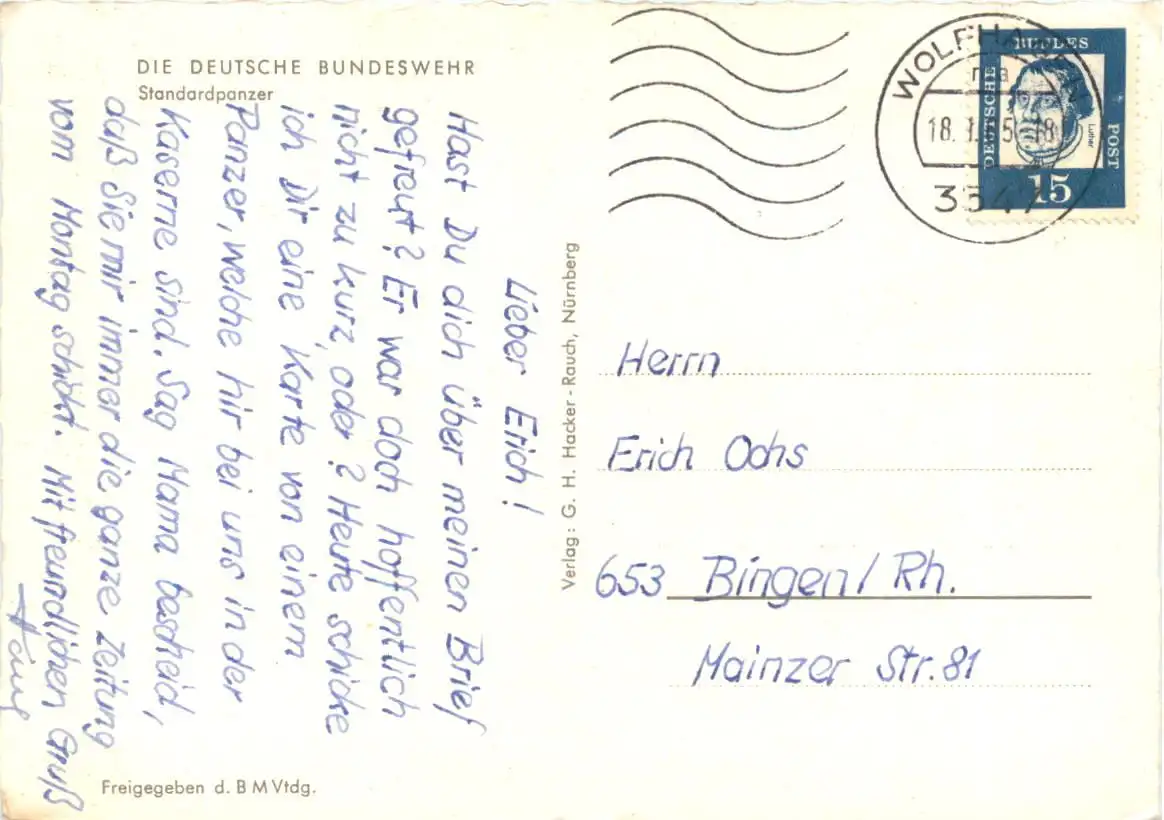 DIE DEUTSCHE BUNDESWEHR
Standardpanzer
Lieber Erich!
Hast Du dich über meinen Brief
gefreut? Er war doch hoffentlich
nicht zu kurz, oder? Heute schicke
ich Dir eine Karte von einem
Panzer, welche hir bei uns in der
Kaserne sind. Sag Mama bescheid,
daß Sie mir immer die ganze Zeitung
vom Montag schickt. Mit freundlichen Gruß
Freigegeben d. B M Vtdg.
Verlag: G. H. Hacker-Rauch, Nürnberg
DEUTSCHE BUNDES POST
Luther
15
18.
18
Herrn
Erich Ochs
653 Bingen/Rh.
Mainzer Str. 81